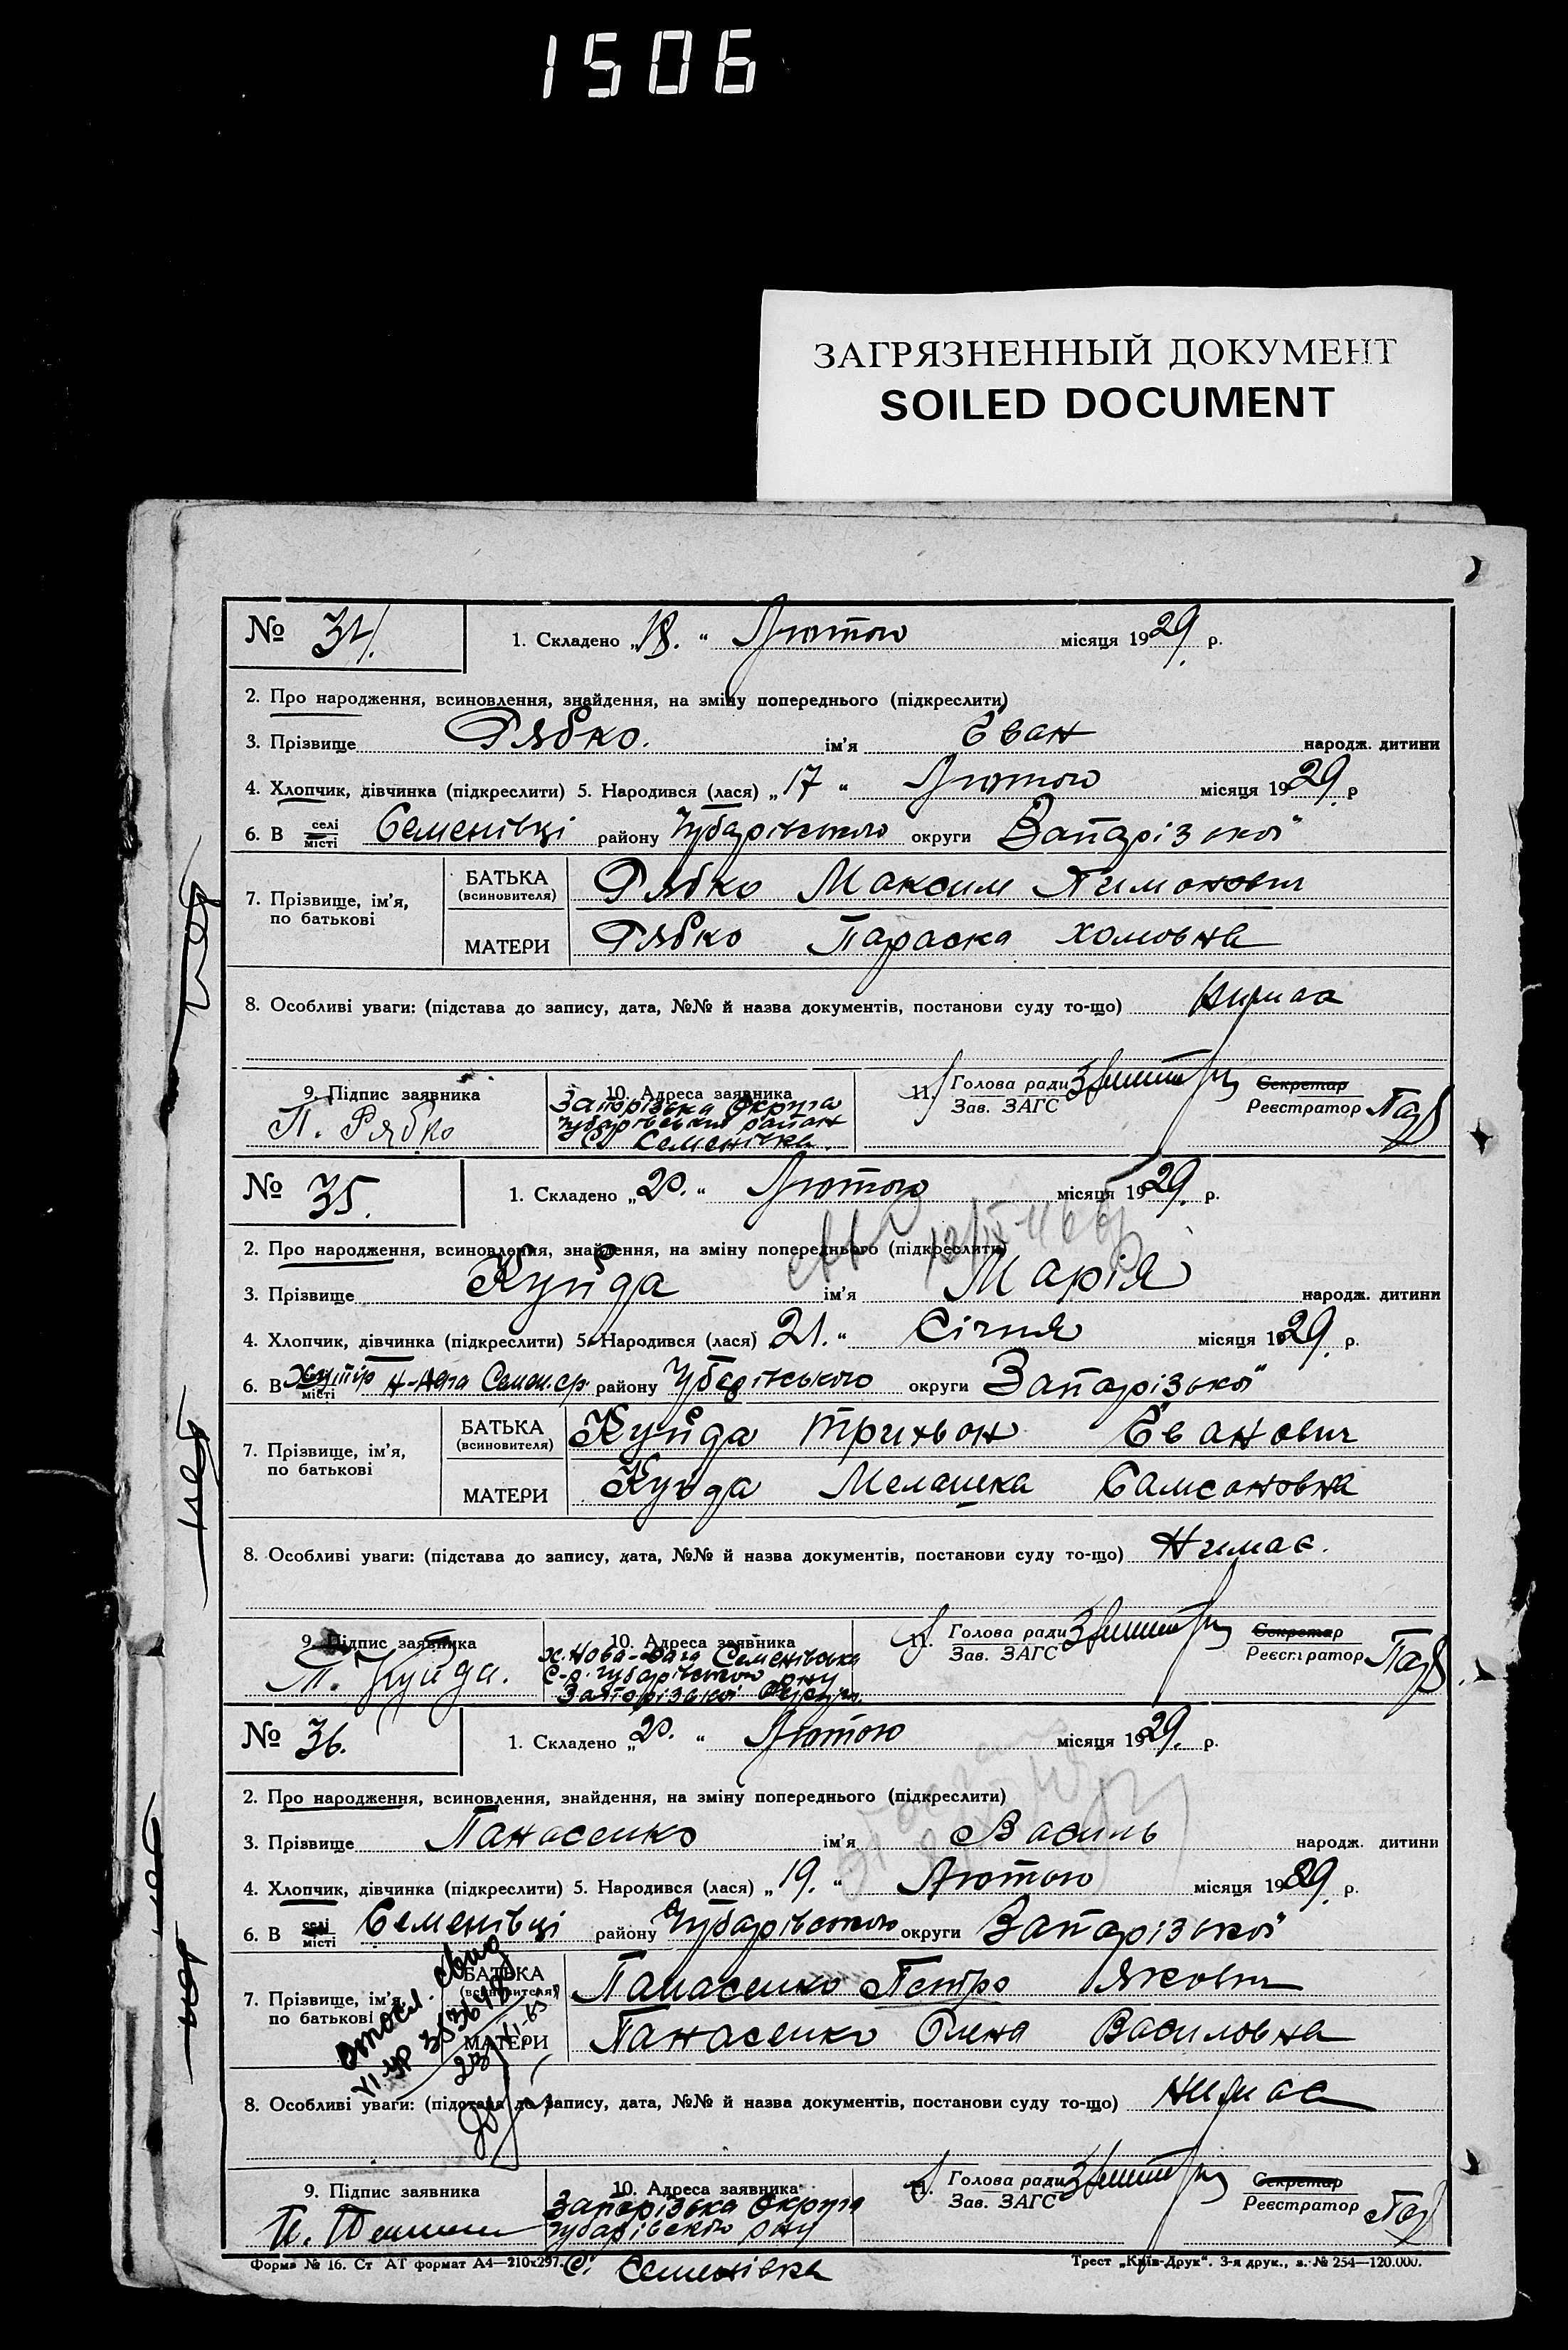 1506
ЗАГРЯЗНЕННЫЙ ДОКУМЕНТ
SOILED DOCUMENT
№ 34. 1. Складено „18.“ Лютого місяця 1929. р.
2. Про народження, всиновлення, знайдення, на зміну попереднього (підкреслити)
3. Прізвище Рябко. ім'я Єван народж. дитини
4. Хлопчик, дівчинка (підкреслити) 5. Народився (лася) „17“ Лютого місяця 1929. р
6. В селі місті Семенівці району Чубарівського округи Запарізької
7. Прізвище, ім'я, по батькові БАТЬКА (всиновителя) Рябко Максим Тимонович
МАТЕРИ Рябко Параска Хомовна
8. Особливі уваги: (підстава до запису, дата, №№ й назва документів, постанови суду то-що) Нимає
9. Підпис заявника 10. Адреса заявника 11. Голова ради Секретар
Зав. ЗАГС Реєстратор
П. Рябко Запорізька Округа
Чубарівський район
с. Семенівка.
№ 35. 1. Складено „20.“ Лютого місяця 1929. р.
2. Про народження, всиновлення, знайдення, на зміну попереднього (підкреслити)
3. Прізвище Куйда ім'я Марія народж. дитини
4. Хлопчик, дівчинка (підкреслити) 5. Народився (лася) 21.“ Січня місяця 1929. р.
6. В місті Хутір Семен.ср. району Чубарівського округи Запарізької
7. Прізвище, ім'я, по батькові БАТЬКА (всиновителя) Куйда Трихвон Єванович
МАТЕРИ Куйда Мелашка Самсоновна
8. Особливі уваги: (підстава до запису, дата, №№ й назва документів, постанови суду то-що) Нимає.
9. Підпис заявника 10. Адреса заявника 11. Голова ради Секретар
Зав. ЗАГС Реєстратор
Т. Куйда. х. Нова- Семенівська
с-р. Чубарівського р-ну
Запорізької Округи.
№ 36. 1. Складено „20.“ Лютого місяця 1929. р.
2. Про народження, всиновлення, знайдення, на зміну попереднього (підкреслити)
3. Прізвище Панасенко ім'я Василь народж. дитини
4. Хлопчик, дівчинка (підкреслити) 5. Народився (лася) „19.“ Лютого місяця 1929. р.
6. В селі місті Семенівці району Чубарівського округи Запарізької
7. Прізвище, ім'я, по батькові БАТЬКА (всиновителя) Панасенко Петро Якович
МАТЕРИ Панасенко Олена Василовна
8. Особливі уваги: (підстава до запису, дата, №№ й назва документів, постанови суду то-що) Нимає
9. Підпис заявника 10. Адреса заявника 11. Голова ради Секретар
Зав. ЗАГС Реєстратор
Запорізька Округа
Чубарівського р-ну
с. Семенівка
Форма № 16. Ст АТ формат А4—210x297. Трест „Київ-Друк“. 3-я друк., з. № 254—120.000.